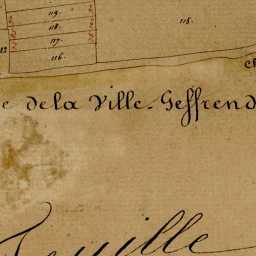 119.
118.
117.
116.
115.
e de la Ville-Geffrend
Feuille